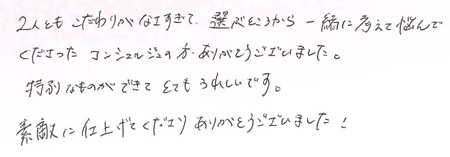 2人ともこだわりがなすぎて、選ぶところから一緒に考えて悩んで
くださったコンシェルジュの方、ありがとうございました。
特別なものができてとてもうれしいです。
素敵に仕上げてくださりありがとうございました！